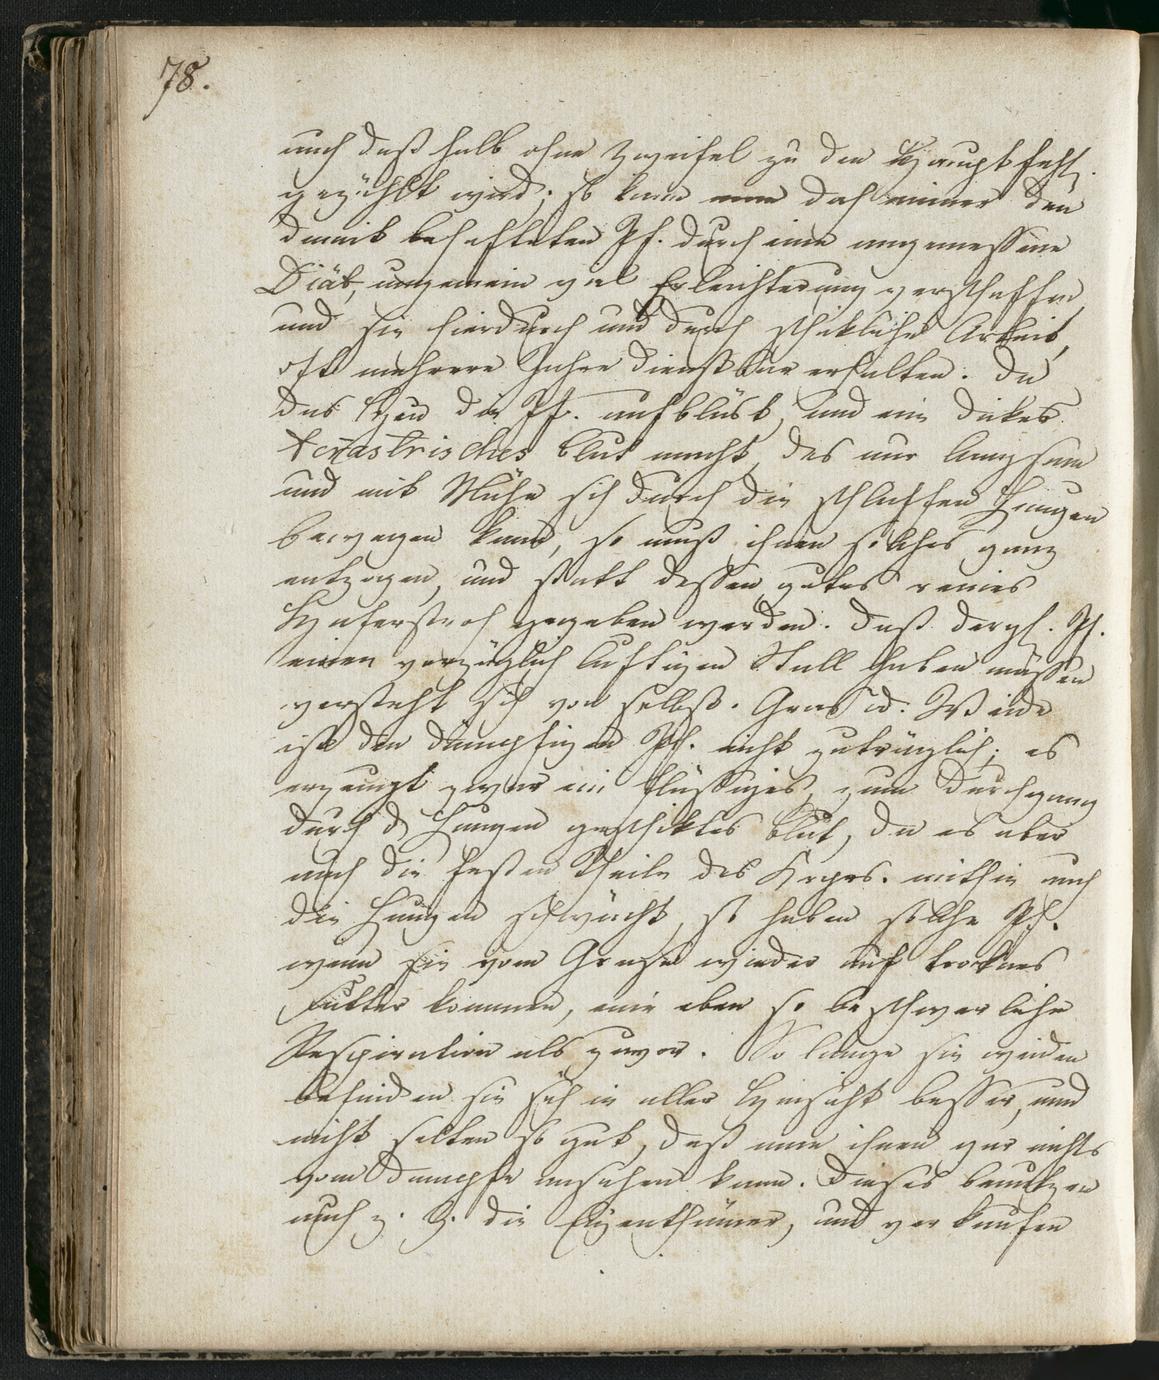 78.
auch deßhalb ohne Zweifel zu den Hauptfehl.
gezählt wird; so kann man doch immer den
damit behafteten Pf. durch eine angemessene
Diät, ungemein viel Erleichterung verschaffen,
und sie hierdurch und durch schikliche Arbeit,
oft mehrere Jahre dienstbar erhalten. Da
das Heu die Pf. aufbläst, und ein dickes
terrastrisches Blut macht, das nur langsam
und mit Mühe sich durch die schlaffen Lungen
bewegen kann, so muß ihnen solches ganz
entzogen, und statt dessen gutes reines
Haferstroh gegeben werden. Daß dergl. Pf.
einen vorzüglich luftigen Stall haben müssen
versteht sich von selbst. Gras od. Weide
ist den dämpfigen Pf. nicht zuträglich; es
erzeugt zwar ein flüssiges, zum Durchgang
durch d. Lungen geschiktes Blut, da es aber
auch die festen Theile des Krprs. mithin auch
die Lungen schwächt, so haben solche Pf.
wenn sie vom Grase wieder auf troknes
Futter kommen, eine eben so beschwerliche
Respiration als zuvor. So lange sie weiden
befinden sie sich in aller Hinsicht besser, und
nicht selten so gut, daß man ihnen gar nichts
vom Dampfe ansehen kann. Dieses benutzen
auch z. B. die Eigenthümer, und verkaufen